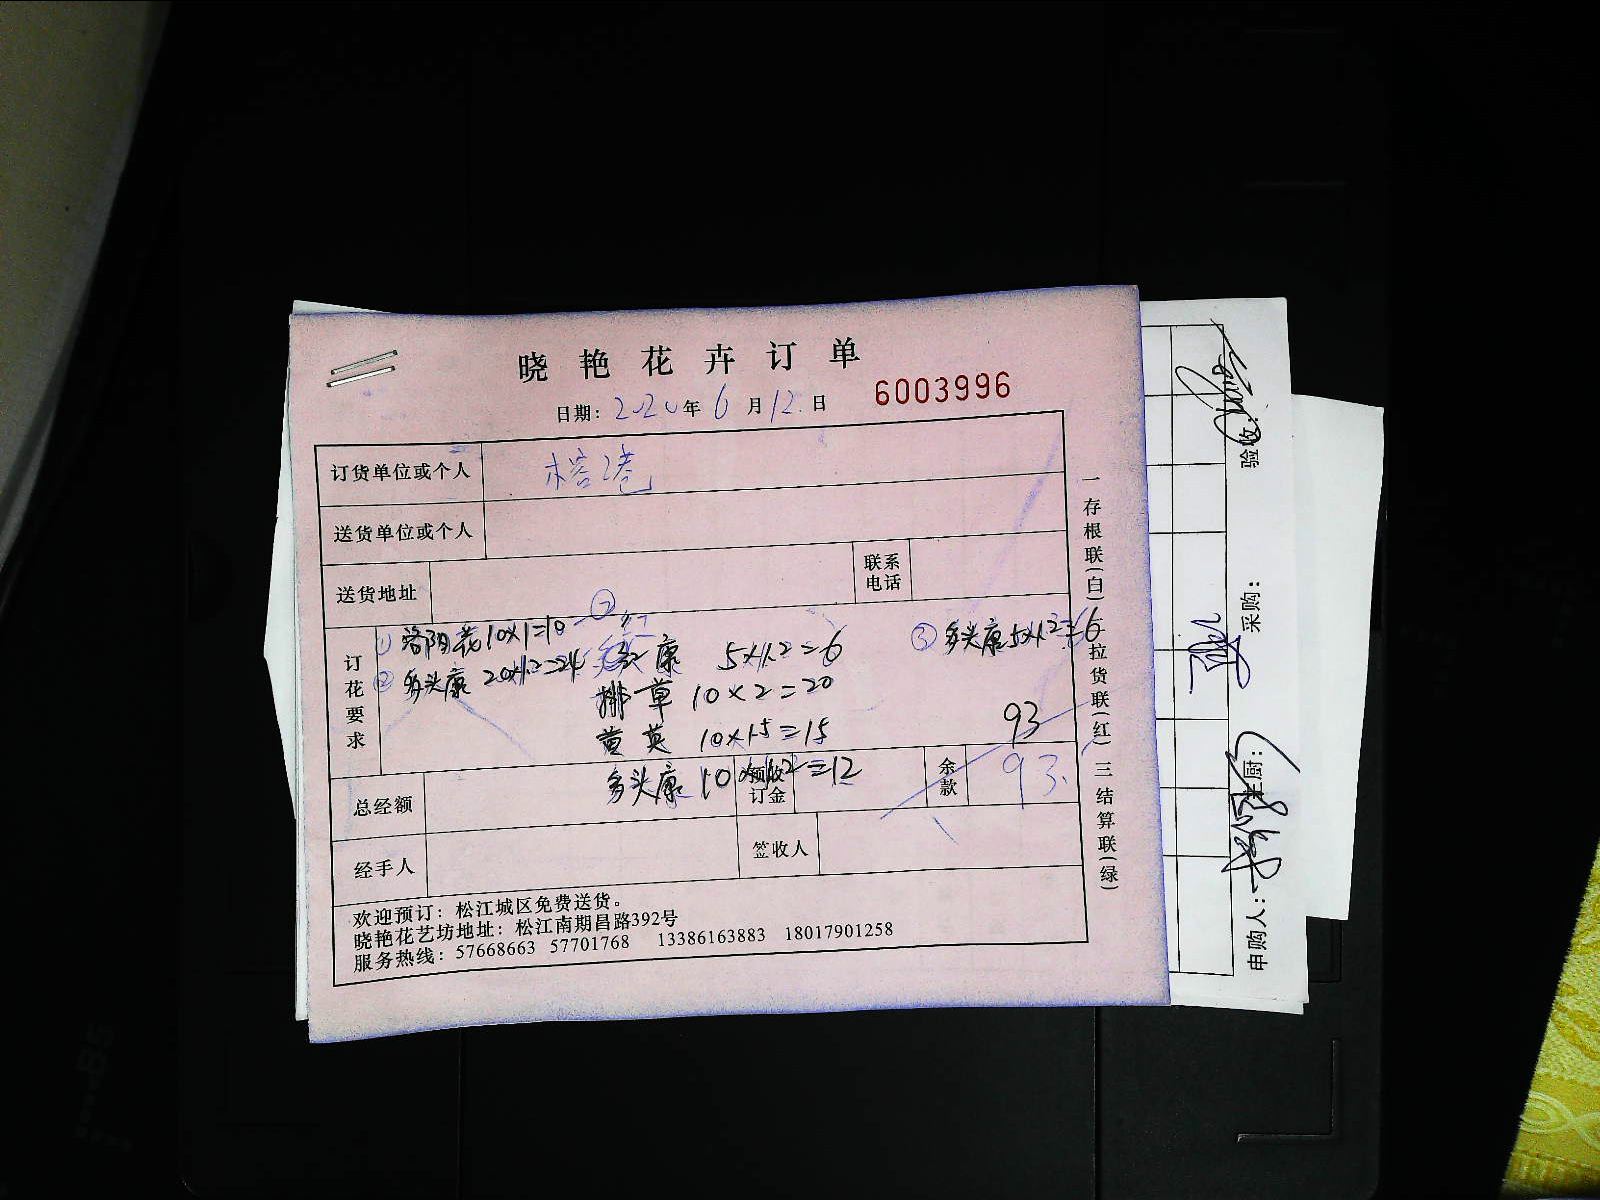 晓艳花卉订单
日期：2020年6月12日 6003996
订货单位或个人 榕港
送货单位或个人
送货地址 联系电话
订花要求
① 洛阳花 10×1=10
② 多头康 20×1.2=24
② 红
康 5×1.2=6
排草 10×2=20
黄英 10×1.5=15
多头康 10×1.2=12
③ 多头康 5×1.2=6
93
总经额 预收订金 余款 93.
经手人 签收人
欢迎预订：松江城区免费送货。
晓艳花艺坊地址：松江南期昌路392号
服务热线：57668663 57701768 13386163883 18017901258
一存根联(白)二拉货联(红)三结算联(绿)
申购人： 采购： 验收：